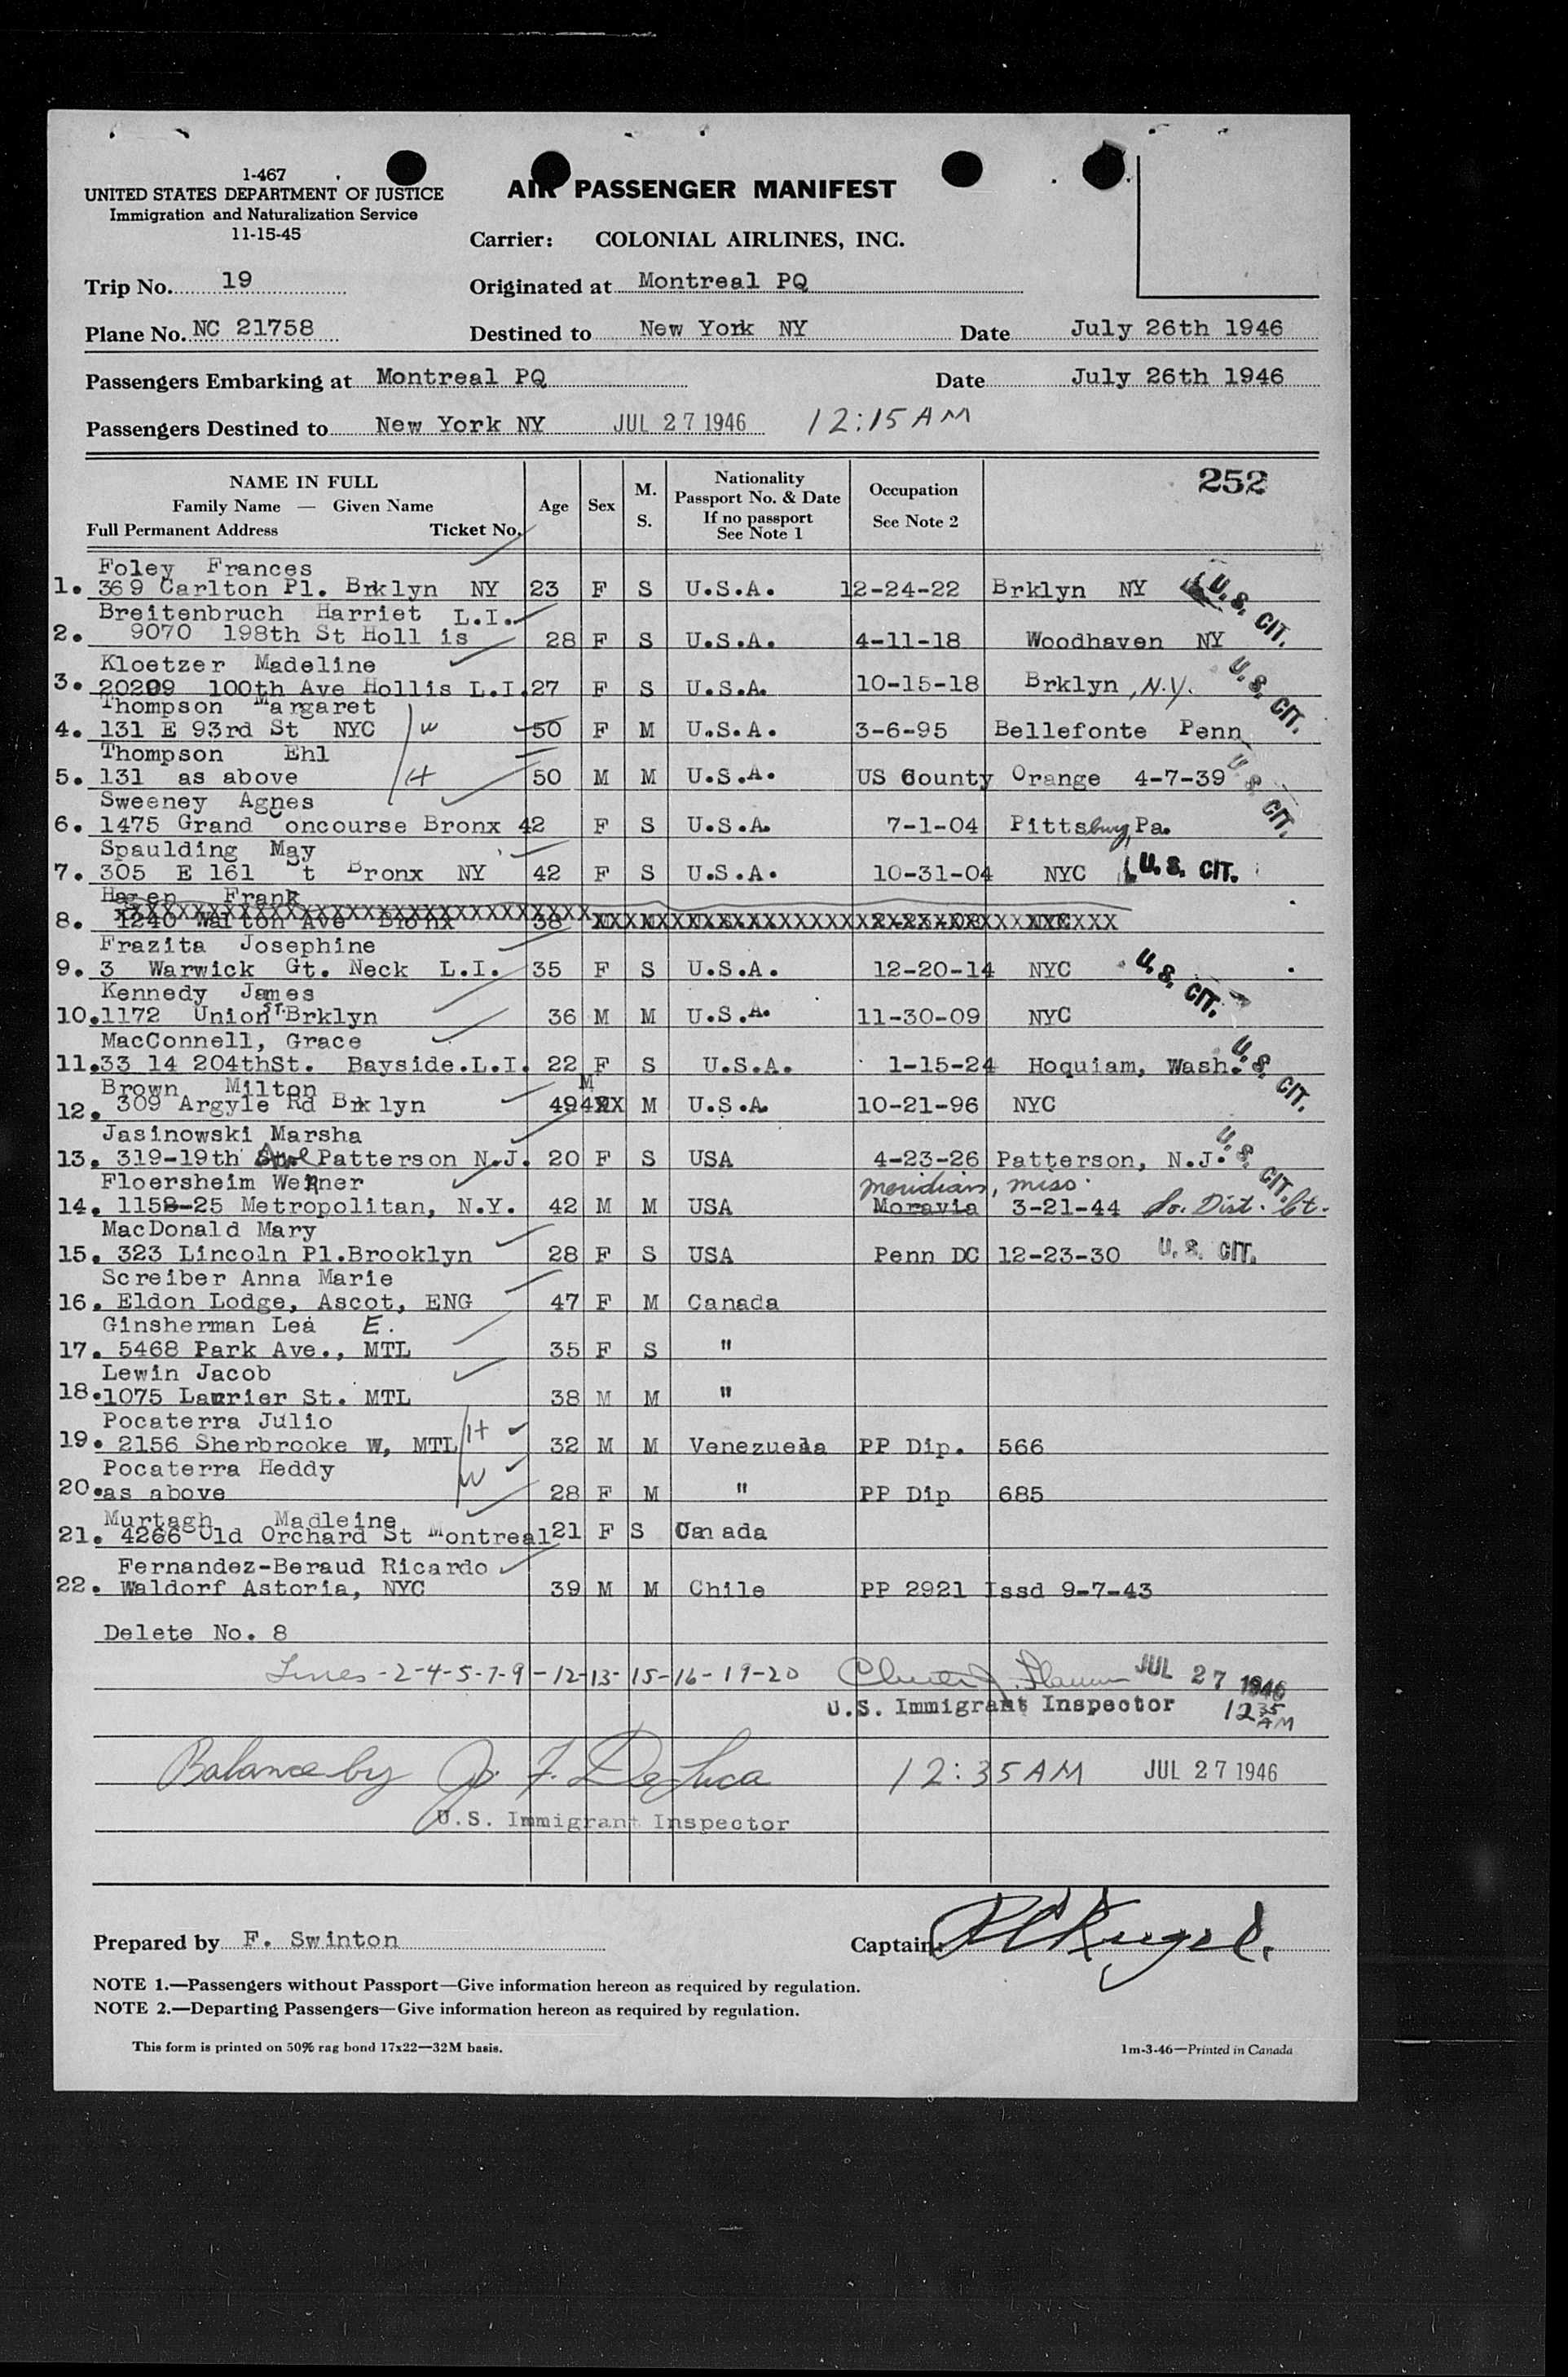 1-467
UNITED STATES DEPARTMENT OF JUSTICE
Immigration and Naturalization Service
11-15-45
AIR PASSENGER MANIFEST
Carrier: COLONIAL AIRLINES, INC.
Trip No. 19 Originated at Montreal PQ
Plane No. NC 21758 Destined to New York NY Date July 26th 1946
Passengers Embarking at Montreal PQ Date July 26th 1946
Passengers Destined to New York NY JUL 27 1946 12:15 AM
252
NAME IN FULL
Family Name — Given Name
Full Permanent Address Ticket No.
Age Sex M. S.
Nationality
Passport No. & Date
If no passport
See Note 1
Occupation
See Note 2
Foley Frances
1. 369 Carlton Pl. Brklyn NY 23 F S U.S.A. 12-24-22 Brklyn NY U.S. CIT.
Breitenbruch Harriet L.I.
2. 9070 198th St Holl is 28 F S U.S.A. 4-11-18 Woodhaven NY
Kloetzer Madeline
3. 20209 100th Ave Hollis L.I. 27 F S U.S.A. 10-15-18 Brklyn, N.Y. U.S. CIT.
Thompson Margaret
4. 131 E 93rd St NYC W 50 F M U.S.A. 3-6-95 Bellefonte Penn
Thompson Ehl
5. 131 as above H 50 M M U.S.A. US County Orange 4-7-39 U.S. CIT.
Sweeney Agnes
6. 1475 Grand Concourse Bronx 42 F S U.S.A. 7-1-04 Pittsburg, Pa.
Spaulding May
7. 305 E 161 St Bronx NY 42 F S U.S.A. 10-31-04 NYC U.S. CIT.
Hagen Frank
8. 1240 Walton Ave Bronx 38 M M 2-23-08 NYC
Frazita Josephine
9. 3 Warwick Gt. Neck L.I. 35 F S U.S.A. 12-20-14 NYC U.S. CIT.
Kennedy James
10. 1172 Union St. Brklyn 36 M M U.S.A. 11-30-09 NYC
MacConnell, Grace
11. 33 14 204thSt. Bayside.L.I. 22 F S U.S.A. 1-15-24 Hoquiam, Wash. U.S. CIT.
Brown Milton
12. 309 Argyle Rd Brklyn 49 M M U.S.A. 10-21-96 NYC
Jasinowski Marsha
13. 319-19th Ave Patterson N.J. 20 F S USA 4-23-26 Patterson, N.J. U.S. CIT.
Floersheim Werner Meridian, Miss.
14. 1158-25 Metropolitan, N.Y. 42 M M USA Moravia 3-21-44 So. Dist. Ct.
MacDonald Mary
15. 323 Lincoln Pl.Brooklyn 28 F S USA Penn DC 12-23-30 U.S. CIT.
Screiber Anna Marie
16. Eldon Lodge, Ascot, ENG 47 F M Canada
Ginsherman Lea E.
17. 5468 Park Ave., MTL 35 F S "
Lewin Jacob
18. 1075 Laurier St. MTL 38 M M "
Pocaterra Julio
19. 2156 Sherbrooke W, MTL H 32 M M Venezuela PP Dip. 566
Pocaterra Heddy
20. as above W 28 F M " PP Dip 685
Murtagh Madleine
21. 4266 Old Orchard St Montreal 21 F S Canada
Fernandez-Beraud Ricardo
22. Waldorf Astoria, NYC 39 M M Chile PP 2921 Issd 9-7-43
Delete No. 8
Lines -2-4-5-7-9-12-13-15-16-19-20 JUL 27 1946
U.S. Immigrant Inspector 12 35 AM
Balance by J. F. DeLuca 12:35 AM JUL 27 1946
U.S. Immigrant Inspector
Prepared by F. Swinton Captain
NOTE 1.—Passengers without Passport—Give information hereon as required by regulation.
NOTE 2.—Departing Passengers—Give information hereon as required by regulation.
This form is printed on 50% rag bond 17x22—32M basis. 1m-3-46—Printed in Canada